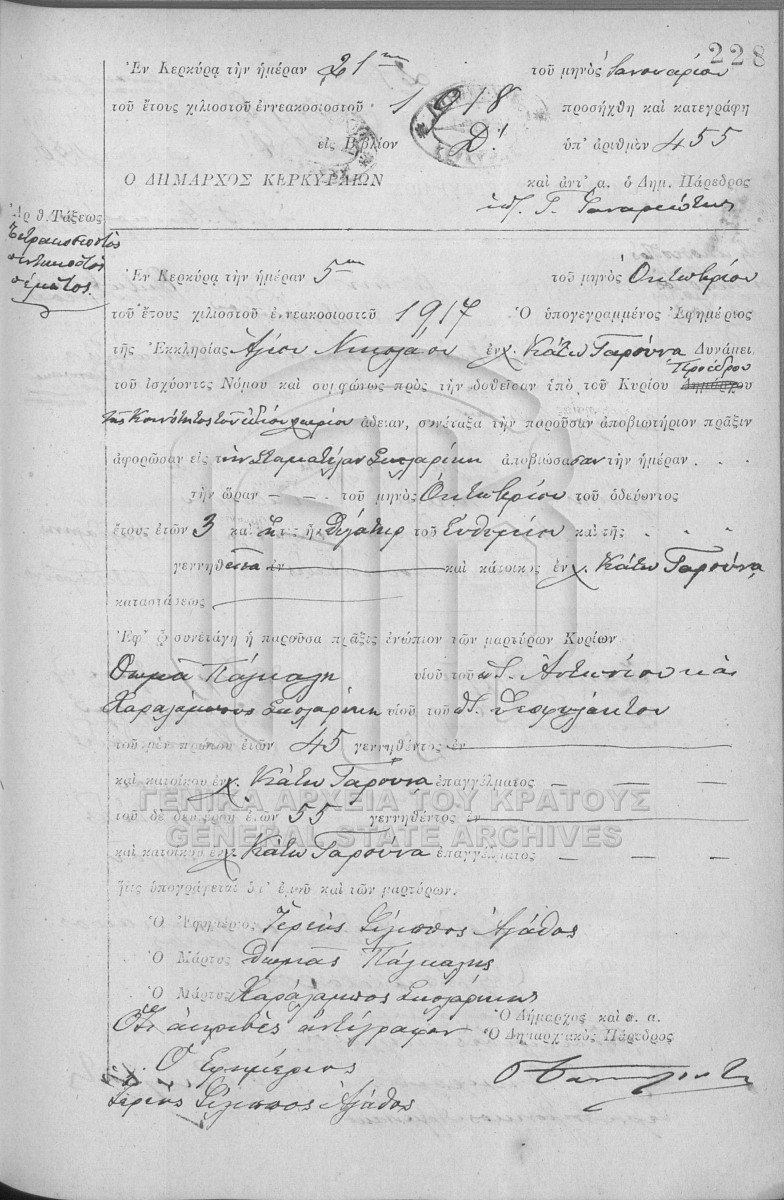 228
Ἐν Κερκύρᾳ τὴν ἡμέραν 21ην τοῦ μηνὸς Ἰανουαρίου
τοῦ ἔτους χιλιοστοῦ ἐννεακοσιοστοῦ 1918 προσήχθη καὶ κατεγράφη
εἰς Βιβλίον Δ! ὑπ' ἀριθμὸν 455
Ο ΔΗΜΑΡΧΟΣ ΚΕΡΚΥΡΑΙΩΝ καὶ ἀντ' α. ὁ Δημ. Πάρεδρος
Ἀρ θ. Τάξεως
Τετρακοσιοστὸς
πεντηκοστὸς
πέμπτος.
Ἐν Κερκύρᾳ τὴν ἡμέραν 5ην τοῦ μηνὸς Ὀκτωβρίου
τοῦ ἔτους χιλιοστοῦ ἐννεακοσιοστοῦ 1917 Ὁ ὑπογεγραμμένος Ἐφημέριος
τῆς Ἐκκλησίας Ἁγίου Νικολάου ἐν χ. Κάτω Γαρούνα Δυνάμει
τοῦ ἰσχύοντος Νόμου καὶ συμφώνως πρὸς τὴν δοθεῖσαν ὑπὸ τοῦ Κυρίου Δημάρχου Προέδρου
τῆς Κοινότητος τοῦ ἰδίου χωρίου ἄδειαν, συνέταξα τὴν παροῦσαν ἀποβιωτήριον πρᾶξιν
ἀφορῶσαν εἰς τὴν Σταματέλαν Σκολαρίκη ἀποβιώσασαν τὴν ἡμέραν . .
τὴν ὥραν – – . τοῦ μηνὸς Ὀκτωβρίου τοῦ ὁδεύοντος
ἔτους ἐτῶν 3 καὶ ἥτις ἦτο θυγάτηρ τοῦ Εὐθυμίου καὶ τῆς . . .
γεννηθεῖσα ἐν — καὶ κάτοικος ἐν χ. Κάτω Γαρούνα,
καταστάσεως —
Ἐφ' ᾧ συνετάγη ἡ παροῦσα πρᾶξις ἐνώπιον τῶν μαρτύρων Κυρίων
Θωμᾶ Πάγκαλη υἱοῦ τοῦ π. Ἀντωνίου καὶ
Χαραλάμπους Σκολαρίκη υἱοῦ τοῦ π. Θεοφυλάκτου
τοῦ μὲν πρώτου ἐτῶν 45 γεννηθέντος ἐν —
καὶ κατοίκου ἐν χ. Κάτω Γαρούνα ἐπαγγέλματος — — —
ΓΕΝΙΚΑ ΑΡΧΕΙΑ ΤΟΥ ΚΡΑΤΟΥΣ
τοῦ δὲ δευτέρου ἐτῶν 55 γεννηθέντος ἐν —
GENERAL STATE ARCHIVES
καὶ κατοίκου ἐν χ. Κάτω Γαρούνα ἐπαγγέλματος — — —
ἥτις ὑπογράφεται ὑπ' ἐμοῦ καὶ τῶν μαρτύρων.
Ὁ Ἐφημέριος Ἱερεὺς Φίλιππος Ἀγάθος
Ὁ Μάρτυς Θωμᾶς Πάγκαλης
Ὁ Μάρτυς Χαράλαμπος Σκολαρίκης
Ὁ Δήμαρχος καὶ α. α.
Ὅτι ἀκριβὲς ἀντίγραφον Ὁ Δημαρχιακὸς Πάρεδρος
Ὁ Ἐφημέριος
Ἱερεὺς Φίλιππος Ἀγάθος